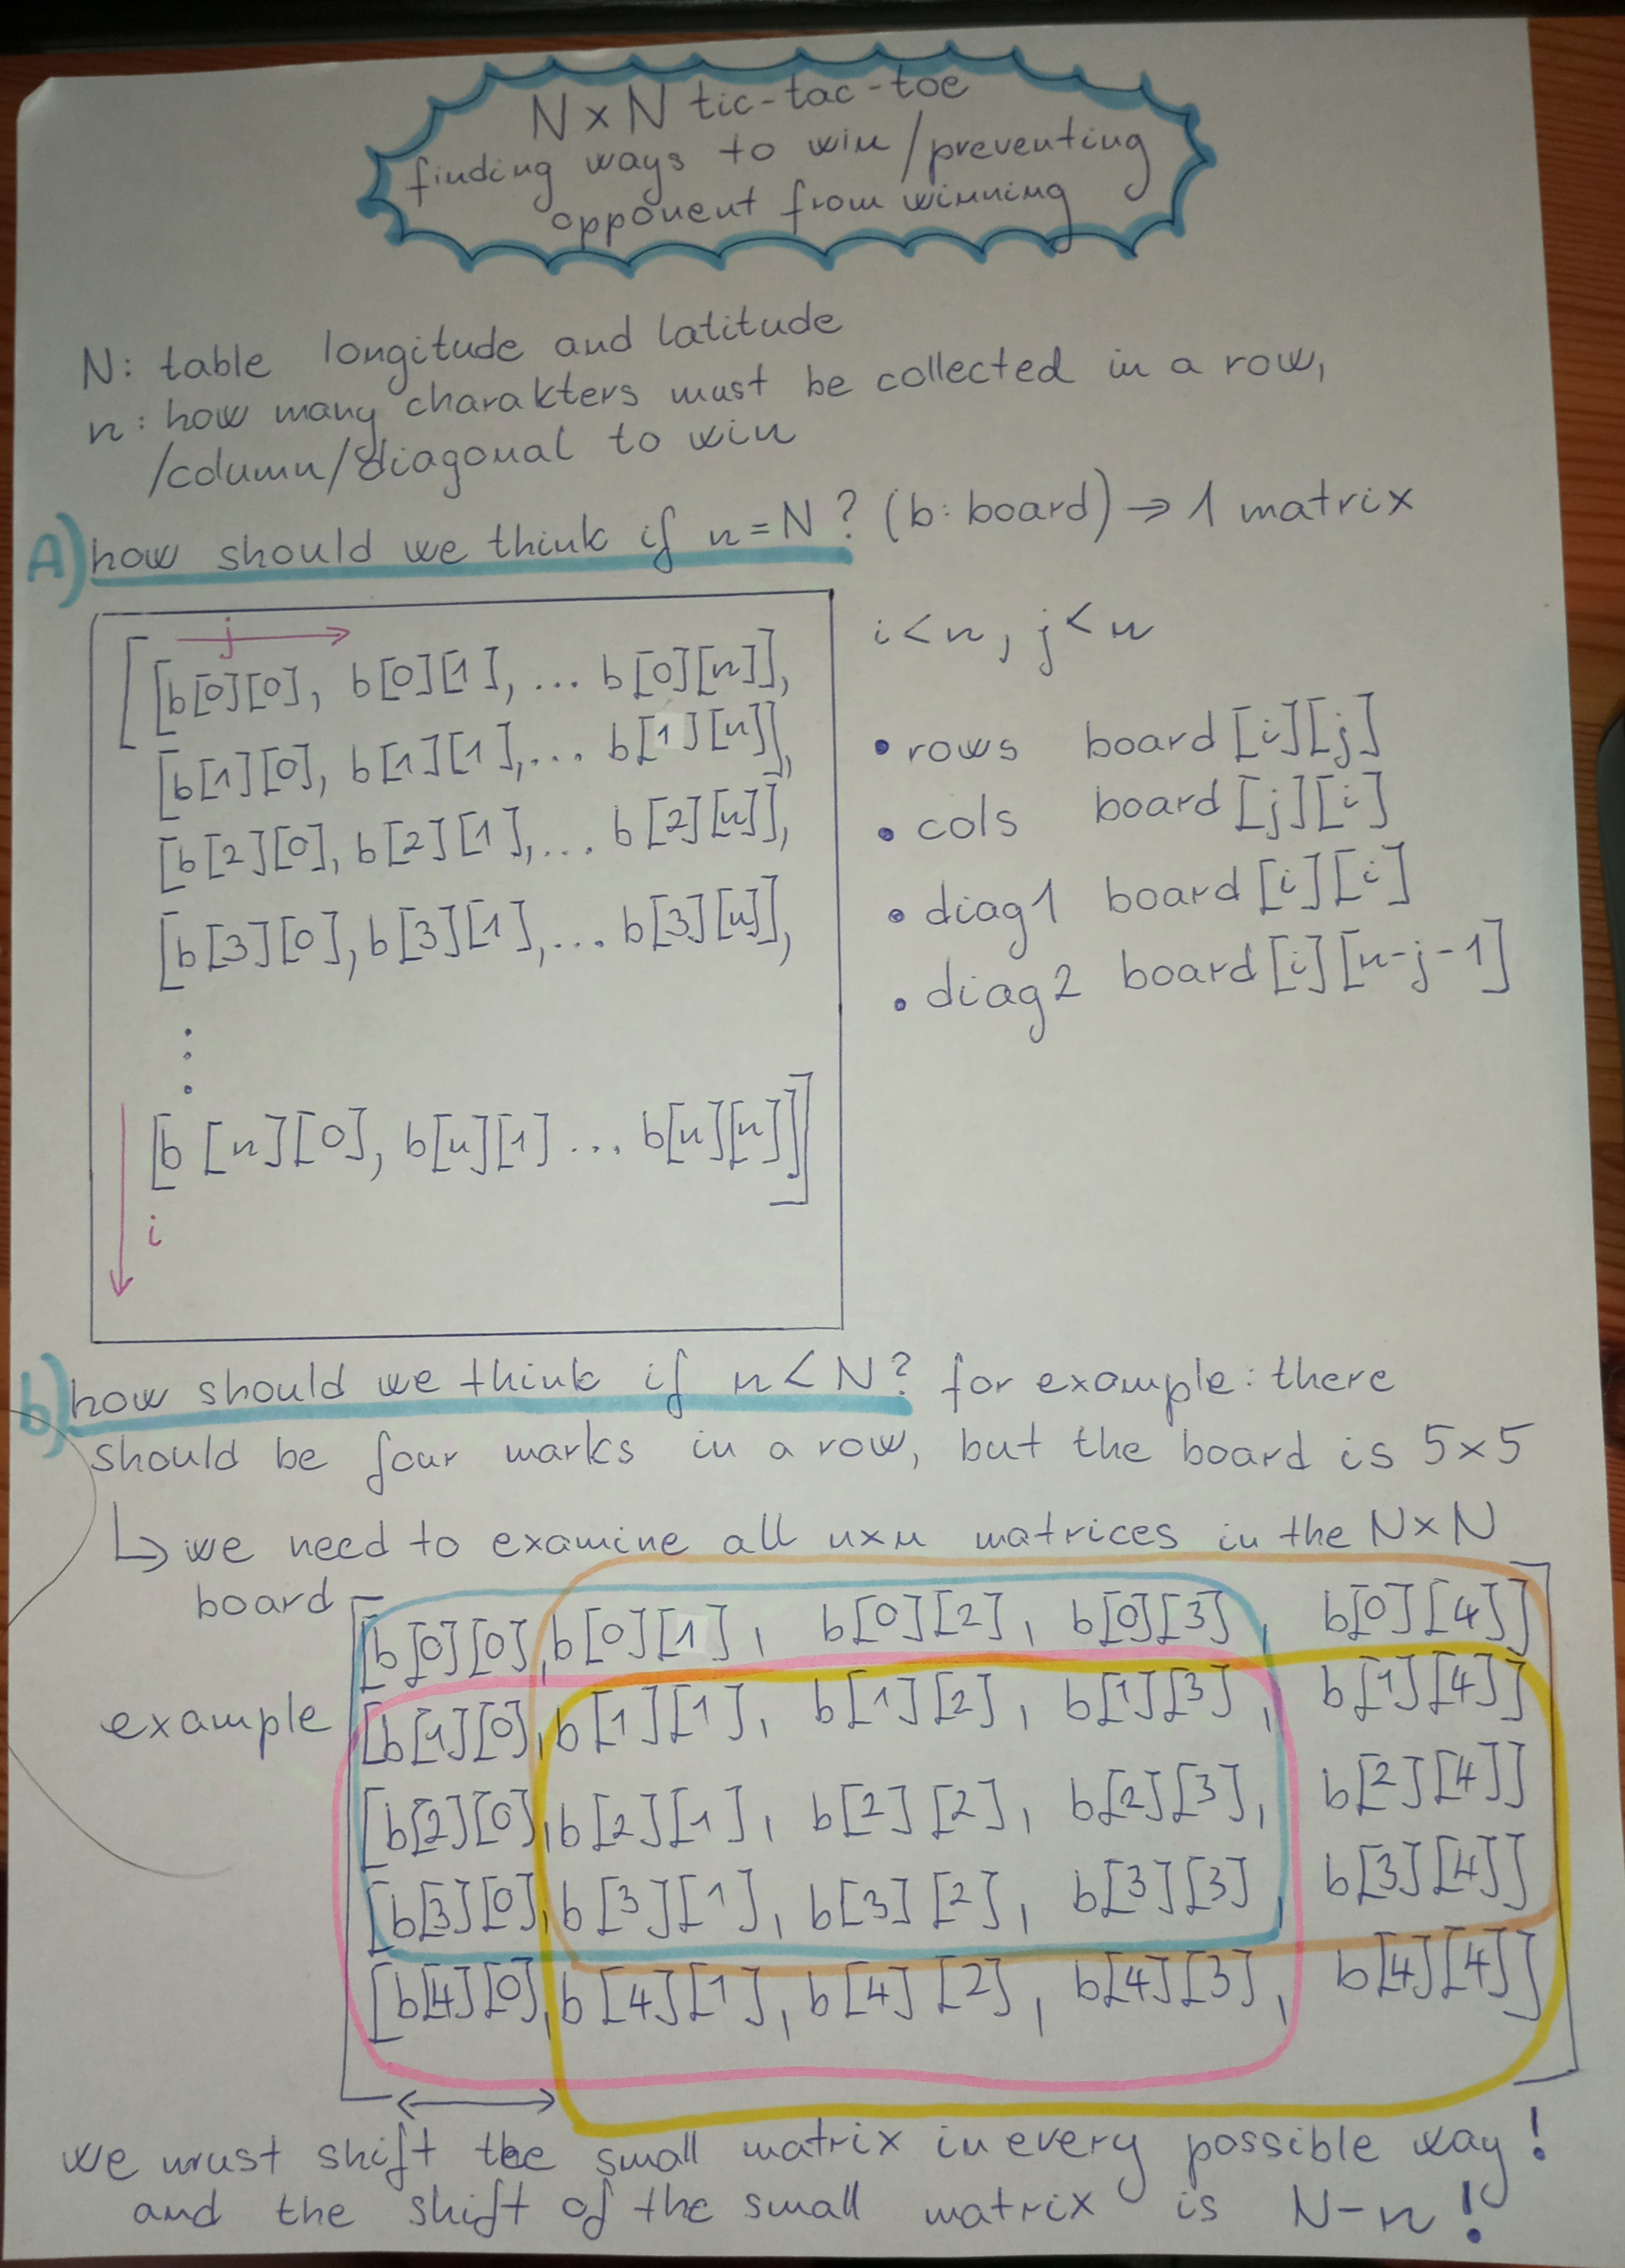 N x N tic-tac-toe
finding ways to win/preventing
opponent from winning
N: table longitude and latitude
n: how many charakters must be collected in a row,
/column/diagonal to win
A) how should we think if n=N? (b: board) → 1 matrix
j
i<n, j<n
[[b[0][0], b[0][1], ... b[0][n]],
[b[1][0], b[1][1],... b[1][n]],
[b[2][0], b[2][1],... b[2][n]],
[b[3][0], b[3][1],... b[3][n]],
⋮
[b[n][0], b[n][1] ... b[n][n]]]
i
• rows board[i][j]
• cols board[j][i]
• diag1 board[i][i]
• diag2 board[i][n-j-1]
b) how should we think if n<N? for example: there
should be four marks in a row, but the board is 5x5
↳ we need to examine all nxn matrices in the NxN
board
example
[[b[0][0], b[0][1], b[0][2], b[0][3], b[0][4]]
[b[1][0], b[1][1], b[1][2], b[1][3], b[1][4]]
[b[2][0], b[2][1], b[2][2], b[2][3], b[2][4]]
[b[3][0], b[3][1], b[3][2], b[3][3], b[3][4]]
[b[4][0], b[4][1], b[4][2], b[4][3], b[4][4]]]
we must shift the small matrix in every possible way!
and the shift of the small matrix is N-n!